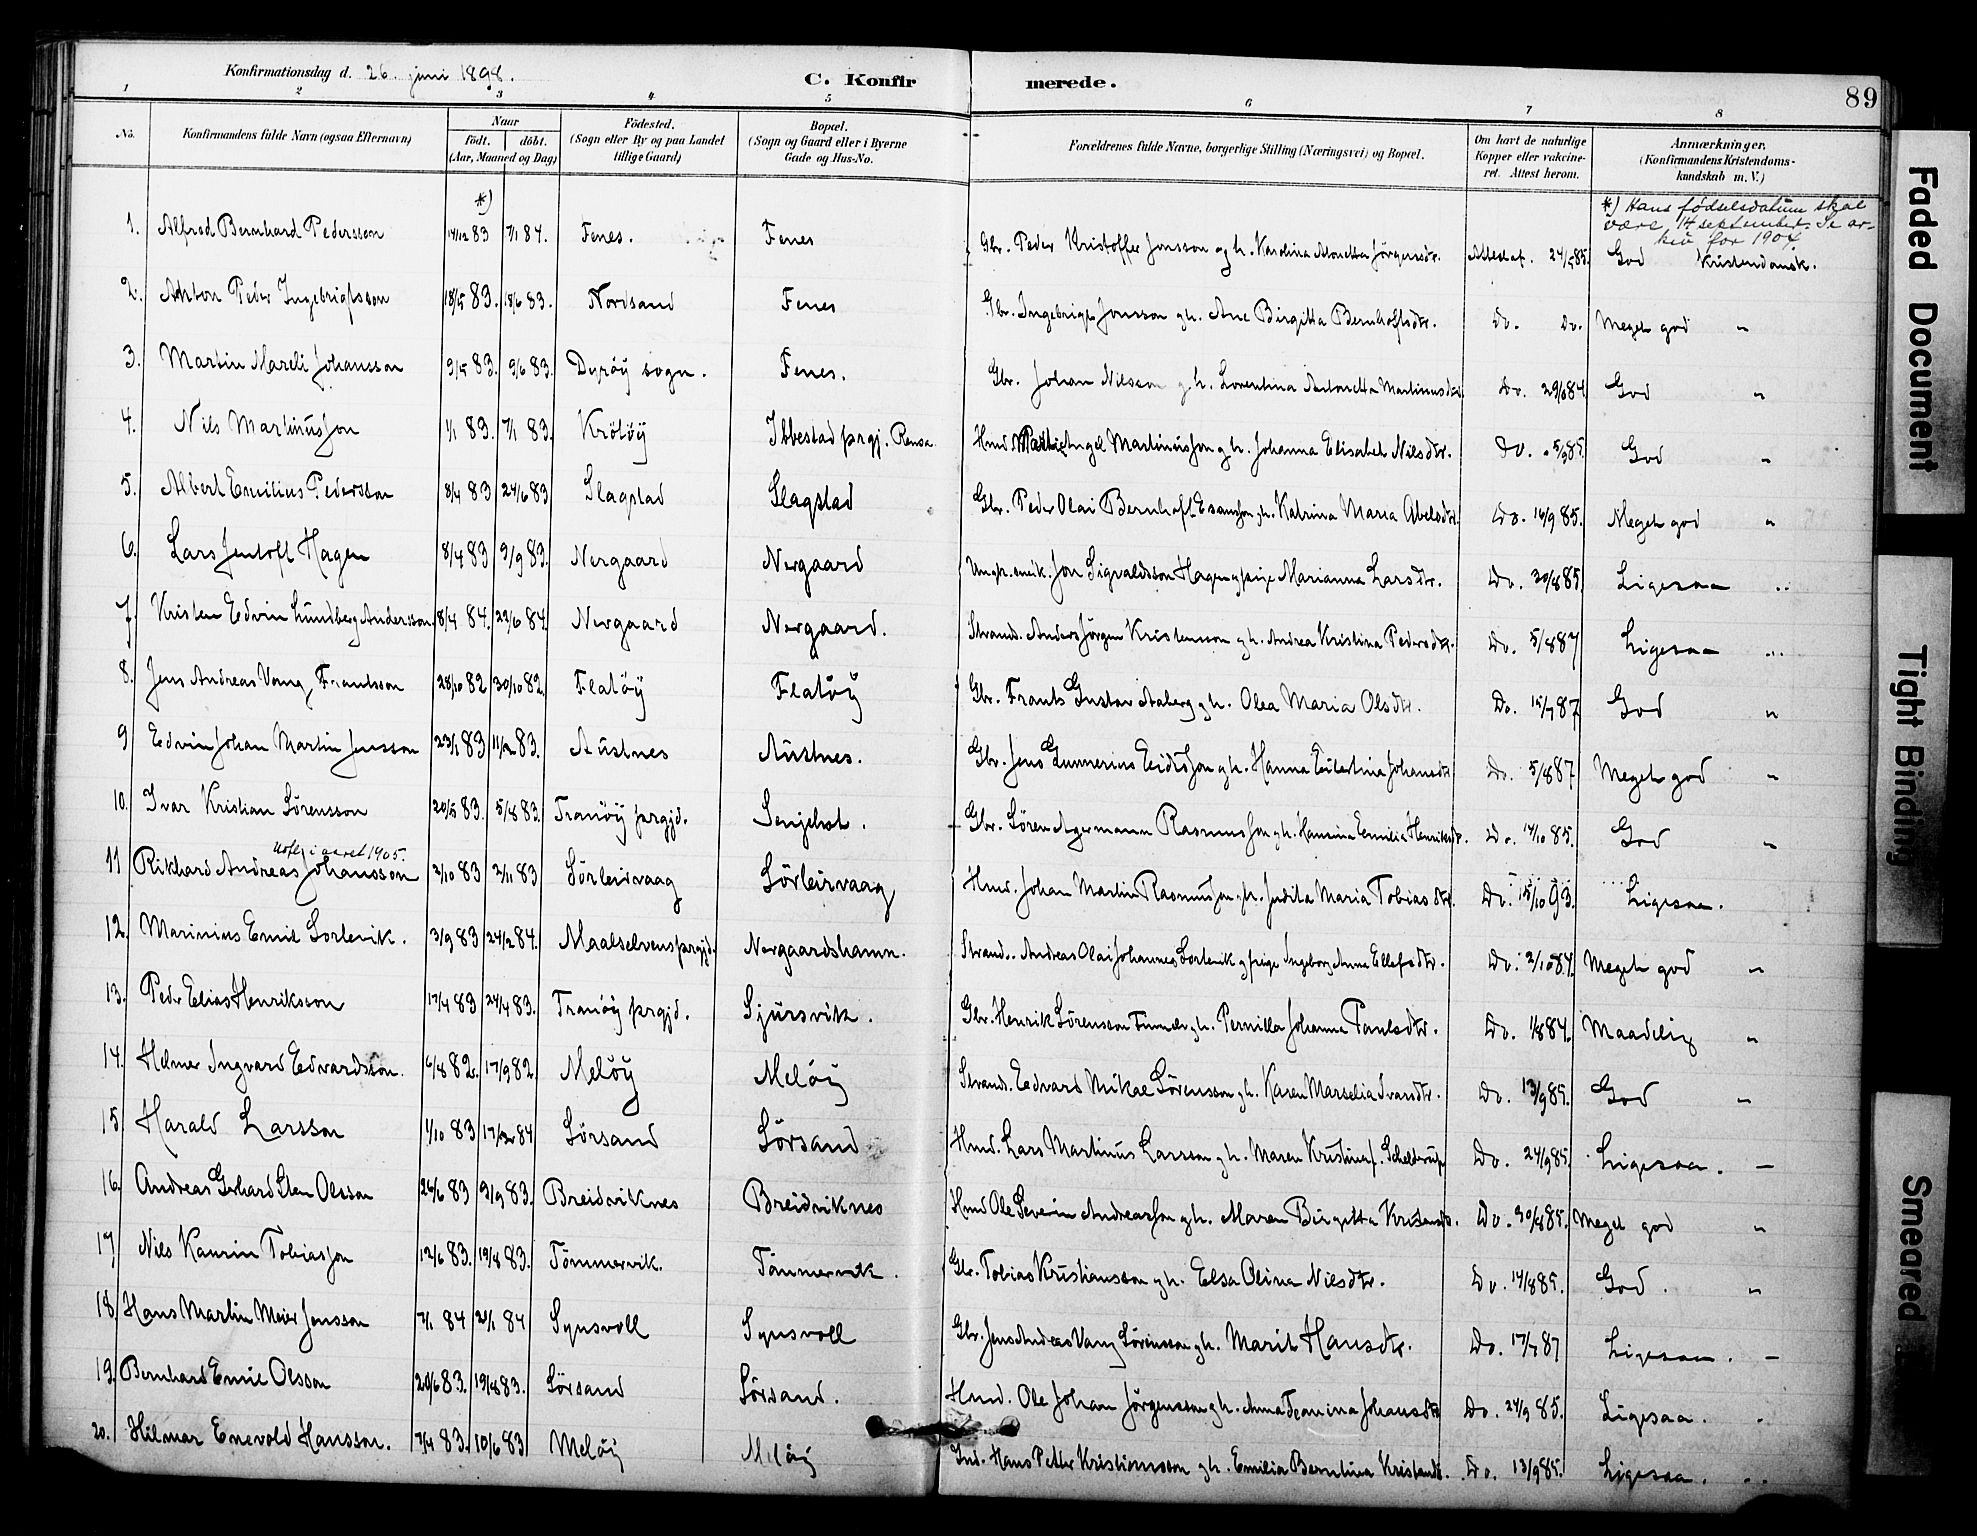 Konfirmationsdag d. 26. juni 1898. C. Konfirmerede. 89
1 2 3 4 5 6 7 8
No. Konfirmandens fulde Navn (ogsaa Efternavn) Naar födt. döbt. (Aar, Maaned og Dag) Födested. (Sogn eller By og paa Landet tillige Gaard) Bopæl. (Sogn og Gaard eller i Byerne Gade og Hus-No. Forældrenes fulde Navne, borgerlige Stilling (Næringsvei) og Bopæl. Om havt de naturlige Kopper eller vakcineret. Attest herom. Anmærkninger. (Konfirmandens Kristendomskundskab m. V.)
*) *) Hans fødselsdatum skal
være 14 september. Se ar-
kiv for 1904.
1. Alfred Bernhard Pedersson 14/12 83 7/1 84. Fenes. Fenes Gbr. Peder Kristoffer Jonsson og h. Karolina Monetta Jørgensdtr. Attest af. 24/5 85. God Kristendomsk.
2. Anton Peder Ingebrigtsson 18/5 83. 18/6 83. Nordsand Fenes Gbr. Ingebrigt Jonsson og h. Ane Birgitta Bernhoftsdtr. Do. Do. Meget god "
3. Martin Mareli Johansson 3/5 83. 9/6 83. Dyröy sogn. Fenes. Gbr. Johan Nilsson og h. Lorentina Antonetta Martinusdtr. Do. 29/8 84 God "
4. Nils Martinusson 1/1 83. 7/1 83. Krötöy Ibbestad prgj. Rensa Hmd. Engel Martinusson og h. Johanna Elisabet Nilsdtr. Do. 5/9 85. God "
5. Albert Emilius Pedersson 8/4 83 24/6 83 Slagstad Slagstad Gbr. Peder Olai Bernhoft Esaiasson og h. Katrina Maria Abelsdtr. Do. 16/9 85. Meget god "
6. Lars Jentoft Hagen 8/4 83 9/9 83. Nergaard Nergaard Ungk. snik. Jon Sigvaldsson Hagen og pige Marianna Larsdtr. Do. 30/8 85 Ligesaa "
7. Kristen Edvin Lundberg Andersson 8/4 84. 22/6 84. Nergaard Nergaard. Strands. Anders Jörgen Kristensson og h. Andrea Kristina Pedersdtr. Do. 5/8 87 Ligesaa "
8. Jens Andreas Vang Frantsson 28/10 82 30/10 82. Flatöy Flatöy Gbr. Frants Gustav Aaberg og h. Olea Maria Olsdtr. Do. 15/7 87 God "
9 Edvin Johan Martin Jensson 23/1 83 11/2 83. Austnes Austnes. Gbr. Jens Gunnerius Eidisson og h. Hanna Eilertina Johansdtr Do. 5/8 87 Meget god "
10. Ivar Kristian Sörensson 20/5 83. 5/8 83. Tranöy prgjd. Senjehst. Gbr. Sören Agermann Rasmusson og h. Hansina Emilia Henriksdtr. Do. 14/10 85. God "
11 Rikhard Andreas Johansson 2/10 83 2/11 83 Sörleirvaag Sörleirvaag Hmd. Johan Martin Rasmusson og h. Judita Maria Tobiasdtr. Do. 15/10 93. Ligesaa.
12. Marinius Emil Sorlevik. 3/9 83 24/2 84. Maalselvens prgjd. Nergaardshamn. Strands. Andreas Olai Johannes Sorlevik og pige Ingeborg Anna Ellefsdtr. Do. 2/10 84. Meget god "
13. Peder Elias Henriksson 17/4 83 24/4 83. Tranöy prgjd. Sjursvik. Gbr. Henrik Sörensson Finnes og h. Pernilla Johanna Paulsdtr. Do. 1/8 84. Maadelig "
14. Helmer Ingvard Edvardsson. 6/8 82. 17/9 82. Melöy Melöy Strands. Edvard Mikal Sörensson og h. Karen Marselia Ivarsdtr. Do. 13/9 85. God "
15. Harald Larsson 1/10 83 17/2 84 Sörsand Sörsand Hmd. Lars Martinus Larsson og h. Maren Kristina f. Schelderup Do. 24/9 85. Ligesaa. —
16. Andreas Gerhard Sten Olsson 26/6 83 9/9 83. Breidviknes Breidviknes Hmd Ole Severin Andreasson og h. Maren Birgitta Kristensdtr. Do. 30/8 85. Meget god "
17 Nils Kaurin Tobiasson 12/6 83. 19/8 83. Tömmervik. Tömmervik. Gbr. Tobias Kristiansson og h. Elsa Olina Nilsdtr. Do. 14/8 85. God. "
18. Hans Martin Meier Jensson 7/1 84 20/1 84 Synsvoll Synsvoll Gbr. Jens Andreas Vang Sörensson og h. Marit Hansdtr. Do. 17/7 87 Ligesaa. —
19. Bernhard Emil Olsson 20/6 83. 19/8 83. Sörsand Sörsand. Hmd. Ole Johan Jörgensson og h. Anna Jeanina Johansdtr Do. 24/9 85. Ligesaa.
20. Hilmar Enevold Hansson. 7/4 83. 10/6 83 Melöy Melöy Ind. Hans Petter Kristiansson og h. Emilia Berntina Kristensdtr. Do. 13/9 85. Ligesaa.
Faded Document
Tight Binding
Smeared